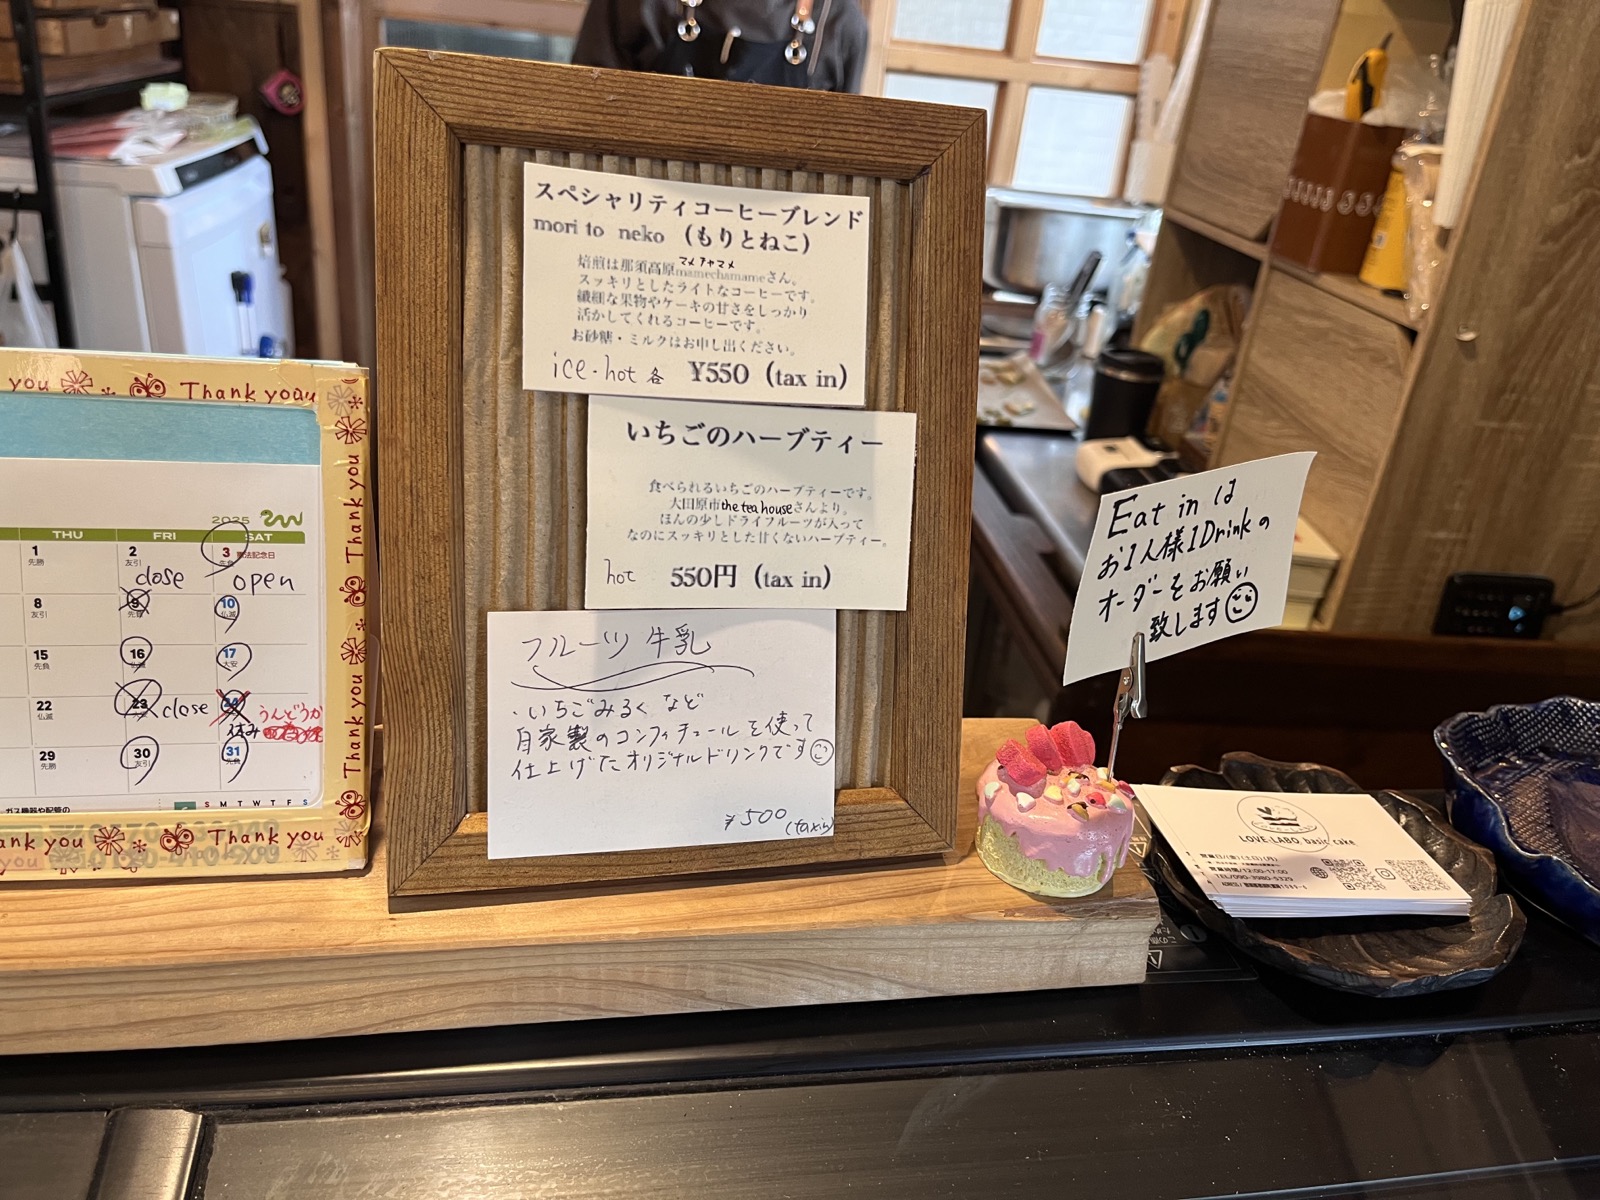 スペシャリティコーヒーブレンド
mori to neko (もりとねこ)
マメチャマメ
焙煎は那須高原mamechamameさん。
スッキリとしたライトなコーヒーです。
繊細な果物やケーキの甘さをしっかり
活かしてくれるコーヒーです。
お砂糖・ミルクはお申し出ください。
ice・hot 各 ¥550 (tax in)
いちごのハーブティー
食べられるいちごのハーブティーです。
大田原市the tea houseさんより。
ほんの少しドライフルーツが入って
なのにスッキリとした甘くないハーブティー。
hot 550円 (tax in)
フルーツ牛乳
・いちごみるくなど
自家製のコンフィチュールを使って
仕上げたオリジナルドリンクです
¥500 (tax in)
Eat in は
お1人様1Drinkの
オーダーをお願い
致します
you Thank you
Thank you
Thank you
Thank you
2025
THU FRI SAT
1 2 3 憲法記念日
先勝 友引
close open
8 9 10
友引 先負 仏滅
15 16 17
先負 仏滅 大安
22 23 24
仏滅 close うんどうか
休み
29 30 31
先勝 友引 先負
ガス機器や配管の
S M T W T F S
Thank you
LOVE LABO basic cake
営業時間/12:00-17:00
TEL/090-3980-5329